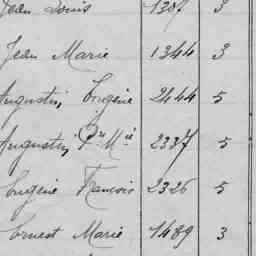 Jean Louis 1307 3
Jean Marie 1344 3
Augustin, Eugène 2444 5
Augustin, P^re M^ie 2337 5
Eugène François 2326 5
Ernest Marie 1489 3